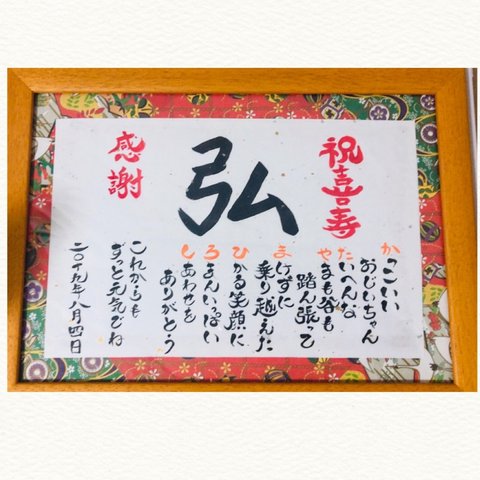 祝喜寿
弘
感謝
かっこいい
おじいちゃん
たいへんな
やまも谷も
踏ん張って
まけずに
乗り越えた
ひかる笑顔に
ろまんいっぱい
しあわせを
ありがとう
これからも
ずっと元気でね
二〇十九年八月四日